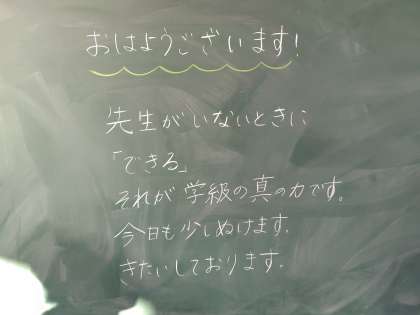 おはようございます!
先生がいないときに
「できる」
それが学級の真の力です。
今日も少しぬけます。
きたいしております。